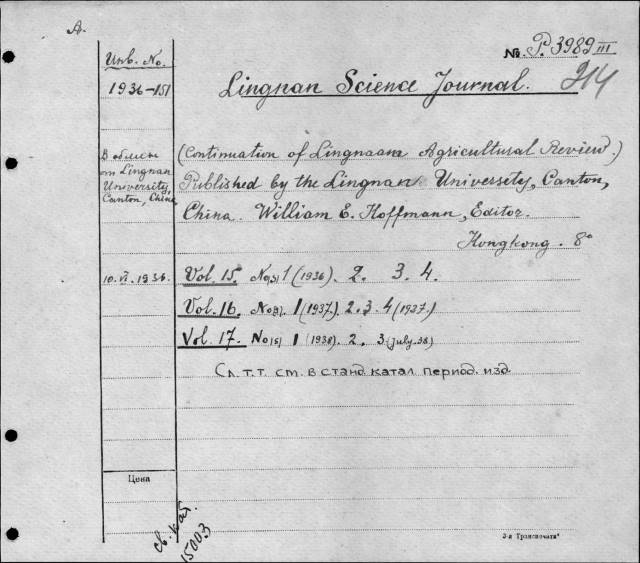 A.
Инв. No.
1936-151
No. P. 3989 III
214
Lingnan Science Journal.
В обмен
от Lingnan
University,
Canton, China
(Continuation of Lingnaam Agricultural Review.)
Published by the Lingnan University, Canton,
China. William E. Hoffmann, Editor.
Hongkong. 8°
10.VI.1936.
Vol. 15. No(s) 1 (1936). 2. 3. 4.
Vol. 16. No(s). 1 (1937). 2. 3. 4 (1937.)
Vol. 17. No(s) 1 (1938). 2. 3 (july. 38)
Сл. т.т. см. в станд. катал. период. изд.
Цена
св. каб.
15003
3-я Транспечать